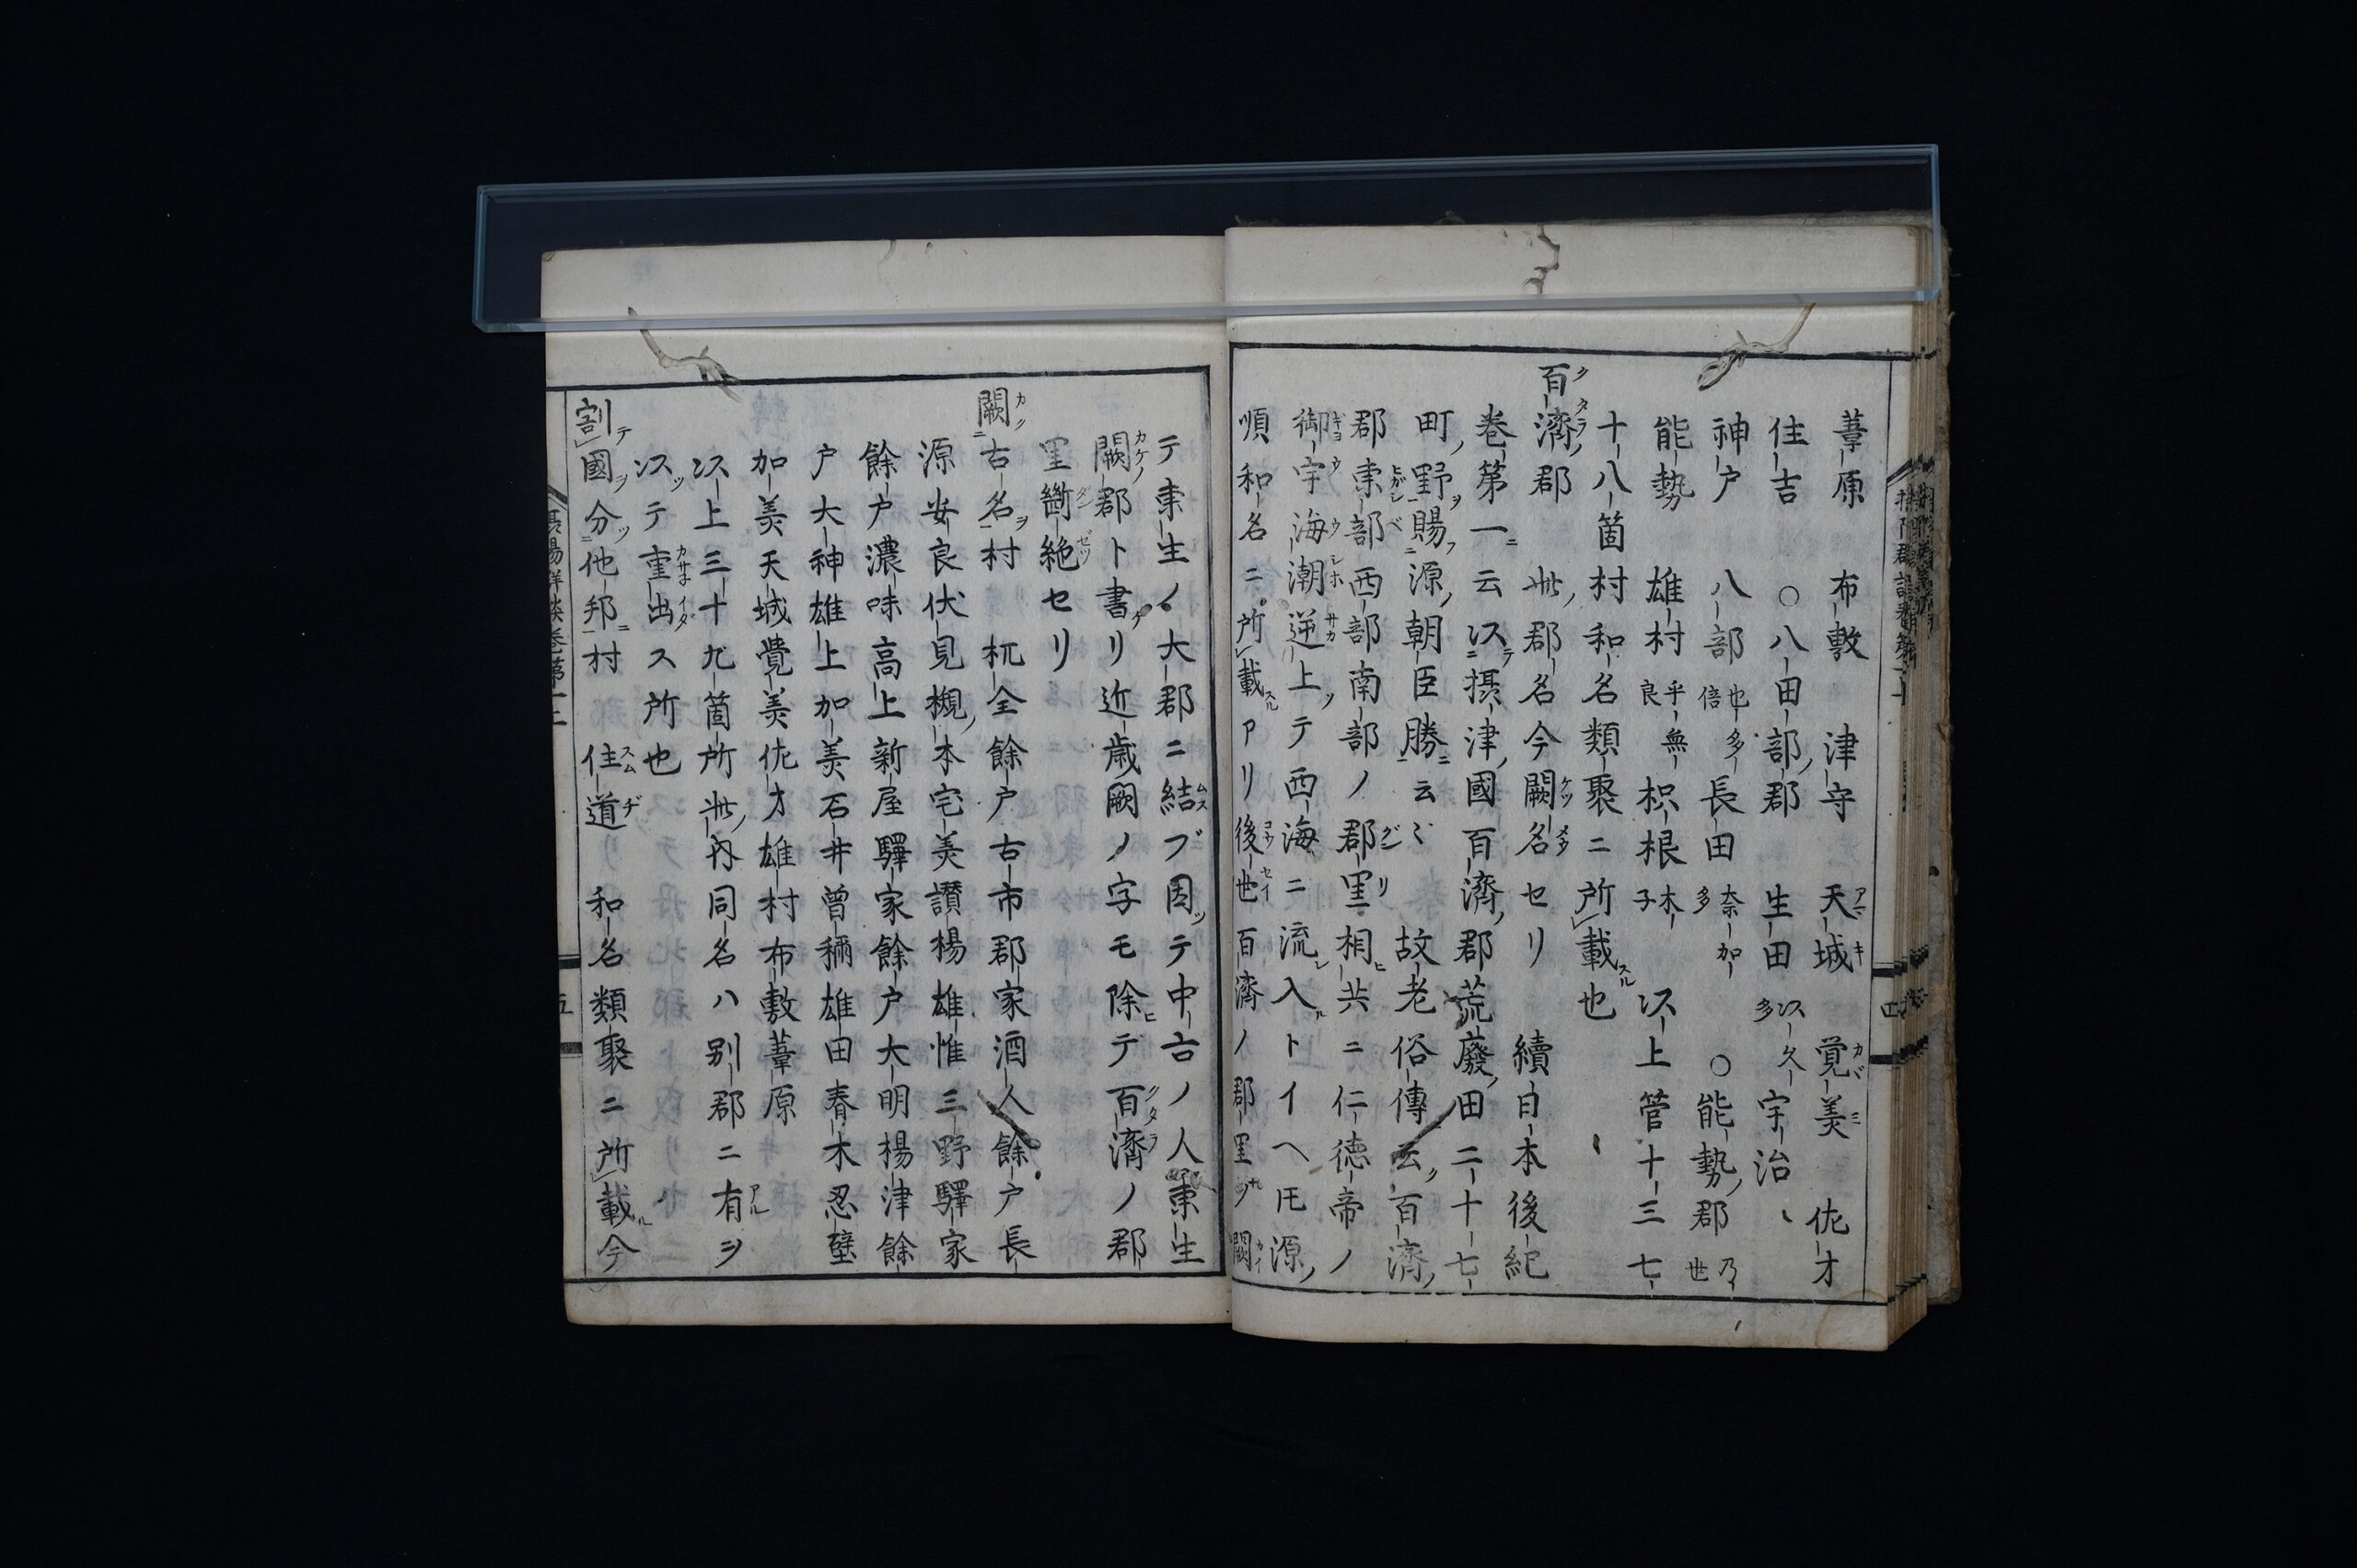 葦原 布敷 津守 天城 覚美 佐才
住吉 ○八田部郡 生田 以久多 宇治
神戸 八部 也多倍 長田 奈加多 ○能勢郡 乃世
能勢 雄村 乎無良 枳根 木子 以上管十三七
十八箇村和名類聚ニ所載也
百濟郡 此郡名今闕名セリ 續日本後紀
巻第一ニ云以摂津國百濟郡荒廢田二十七
町野賜源朝臣勝云〻 故老俗傳云百濟
郡東部西部南部ノ郡里相共ニ仁德帝ノ
御宇海潮逆上テ西海ニ流入トイヘ𪜈源
順和名ニ所載アリ後世百濟ノ郡里ヲ闕
テ東生ノ大郡ニ結ブ因テ中古ノ人東生
闕郡ト書リ近歳闕ノ字モ除テ百濟ノ郡
里斷絶セリ
闕古名村 杭全餘戸古市郡家酒人餘戸長
源安良伏見槻本宅美讃楊雄惟三野驛家
餘戸濃味高上新屋驛家餘戸大明楊津餘
戸大神雄上加美石井曾穪雄田春木忍壁
加美天城覺美佐才雄村布敷葦原
以上三十九箇所此内同名ハ別郡ニ有ヲ
以テ重出ス所也
割國分他邦村 住道 和名類聚ニ所載今